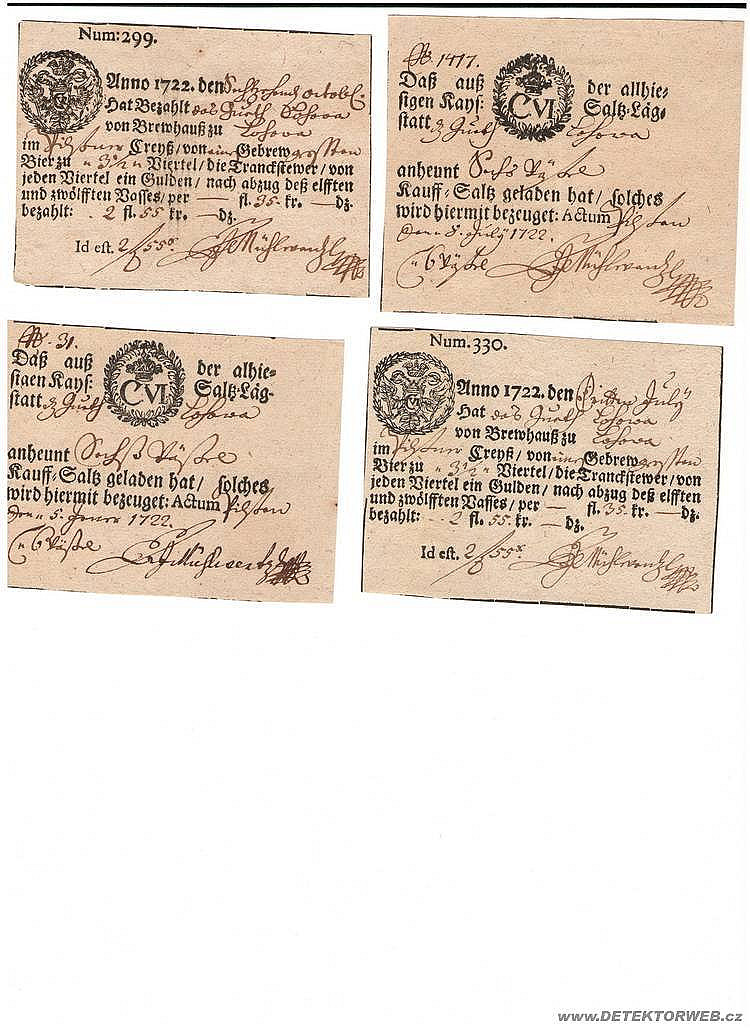 Num: 299.
Anno 1722. den Sechzehend octobℓ:
Hat Bezahlt das Gueth Lohowa
von Brewhauß zu Lohowa
im Pilßner Creyß / von eine Gebrew gersten
Bier zu " 3½ " Viertel / die Tranckstewer / von
jeden Viertel ein Gulden / nach abzug deß elfften
und zwölfften Vasses / per — fl. 35. kr. — dz.
bezahlt: . 2 fl. 55 kr. — dz.
Id est. 2 f 55 x
Mühlwenzl
No. 1417.
Daß auß der allhie-
sigen Kays: CVI Saltz-Läg-
statt d Gueth Lohowa
anheunt Sechs
Kauff-Saltz geladen hat / solches
wird hiermit bezeuget: Actum Pilsen
den 8. July 1722.
Mühlwenzl
No. 31.
Daß auß der alhie-
sigen Kays: CVI Saltz-Läg-
statt d Gueth Lohowa
anheunt Sechß
Kauff-Saltz geladen hat / solches
wird hiermit bezeuget: Actum Pilsten
den 5. Jener 1722.
Num. 330.
Anno 1722. den Dritten July
Hat das Gueth Lohowa
von Brewhauß zu Lohowa
im Pilßner Creyß / von eine Gebrew gersten
Bier zu " 3½ " Viertel / die Tranckstewer / von
jeden Viertel ein Gulden / nach abzug deß elfften
und zwölfften Vasses / per — fl. 35. kr. — dz.
bezahlt: . 2 fl. 55 kr. — dz.
Id est. 2 f 55 x
Mühlwenzl
www.DETEKTORWEB.cz